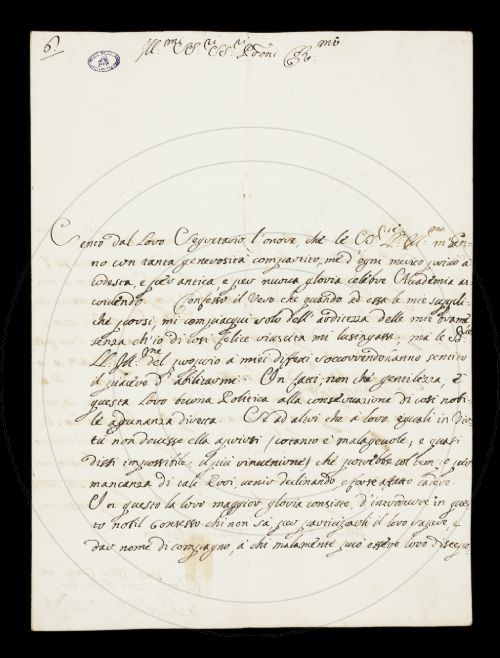 6.
Ill.mi SS.ri SS.ri P.roni Col.mi
Sento dal Loro Segretario l'onore, che le SS.rie LL. Ill.me m'àn-
no con tanta generosità compartito, me d'ogni merito privo à
codesta, e per antica, e per nuova gloria celebre Accademia as-
crivendo. Confesso il vero che quando ad essa le mie suppli-
che porsi, mi compiacqui solo dell'arditezza delle mie brame
senza ch'io di così felice riuscita mi lusingassi, ma le SS.rie
LL. Ill.me del proprio a miei difetti soccorrendo anno sentito
il piacere d'abilitarmi. In fatti, non che gentilezza, è
questa Loro buona Politica alla conservazione di così nobi-
le adunanza diretta. Se ad altri che à loro eguali in Vir-
tù non dovesse ella aprirsi (cotanto è malagevole, e quasi
dissi impossibile, il più rinvenirne) che potrebbe col tem-, e per
mancanza di tali Eroi, venir declinando, e forse affatto cadere.
In questo la loro maggior gloria consiste, d'introdurre in ques-
to nobil Consesso chi non sà per participarli il loro sapere, e
dar nome di compagno, à chi malamente può essere loro discepo-